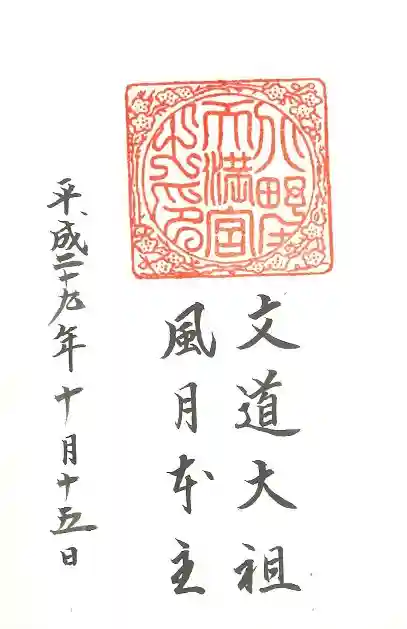 天満宮
文道大祖
風月本主
平成二十九年十月十五日